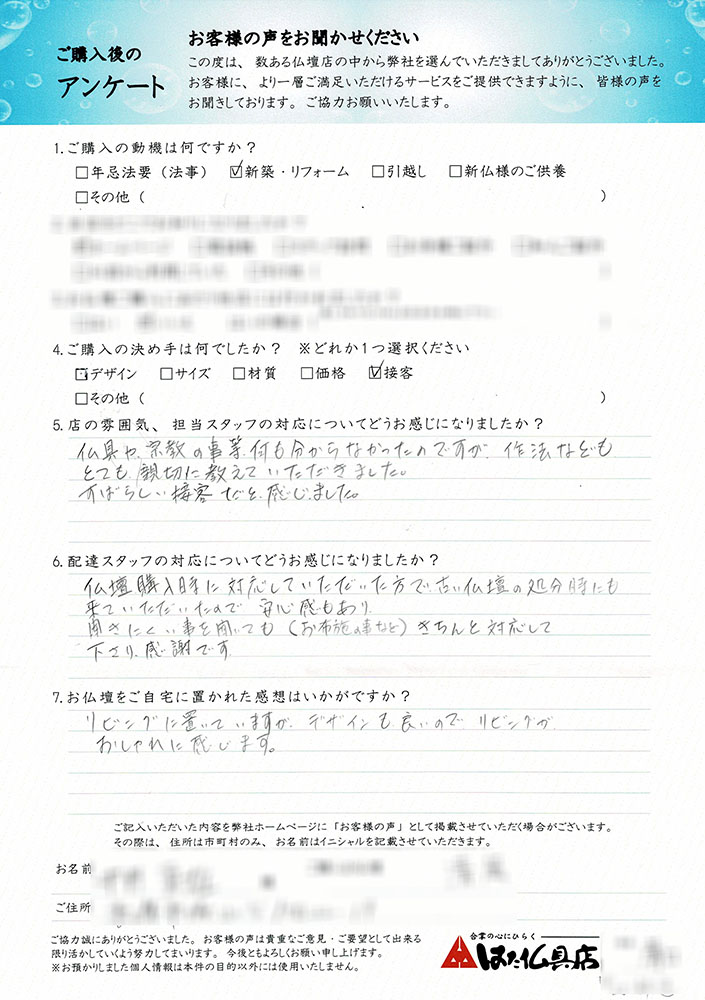 ご購入後の
アンケート
お客様の声をお聞かせください
この度は、数ある仏壇店の中から弊社を選んでいただきましてありがとうございました。
お客様に、より一層ご満足いただけるサービスをご提供できますように、皆様の声を
お聞きしております。ご協力お願いいたします。
1.ご購入の動機は何ですか？
□年忌法要（法事） ☑新築・リフォーム □引越し □新仏様のご供養
□その他（ ）
4.ご購入の決め手は何でしたか？ ※どれか1つ選択ください
□デザイン □サイズ □材質 □価格 ☑接客
□その他（ ）
5.店の雰囲気、担当スタッフの対応についてどうお感じになりましたか？
仏具や、宗教の事等、何も分からなかったのですが、作法なども
とても親切に教えていただきました。
すばらしい接客だと、感じました。
6.配達スタッフの対応についてどうお感じになりましたか？
仏壇購入時に対応していただいた方で、古い仏壇の処分時にも
来ていただいたので 安心感もあり、
聞きにくい事を聞いても（お布施の事など）きちんと対応して
下さり、感謝です
7.お仏壇をご自宅に置かれた感想はいかがですか？
リビングに置いていますが、デザインも良いので、リビングが
おしゃれに感じます。
ご記入いただいた内容を弊社ホームページに「お客様の声」として掲載させていただく場合がございます。
その際は、住所は市町村のみ、お名前はイニシャルを記載させていただきます。
お名前
ご住所
ご協力誠にありがとうございました。お客様の声は貴重なご意見・ご要望として出来る
限り活かしていくよう努力してまいります。今後ともよろしくお願い申し上げます。
※お預かりしました個人情報は本件の目的以外には使用いたしません。
合掌の心にひらく
はた仏具店